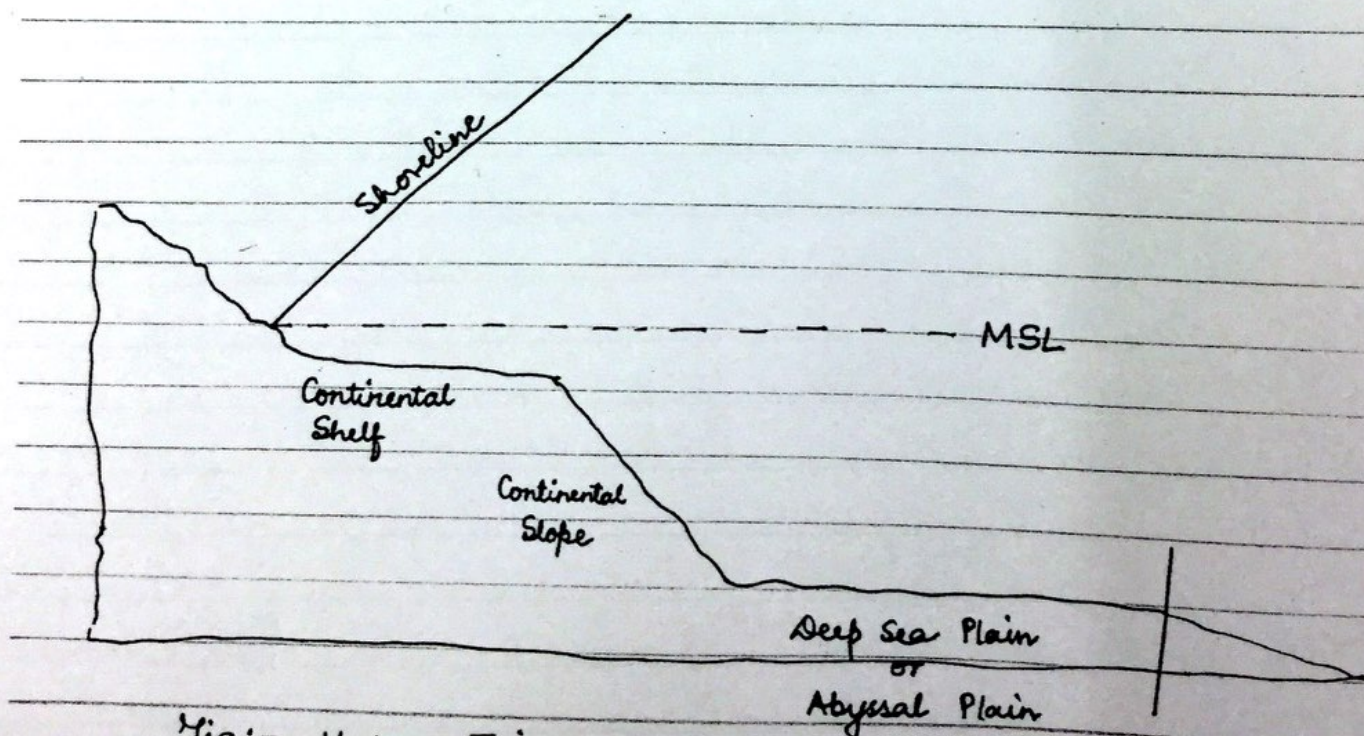 Shoreline
MSL
Continental
Shelf
Continental
Slope
Deep Sea Plain
or
Abyssal Plain